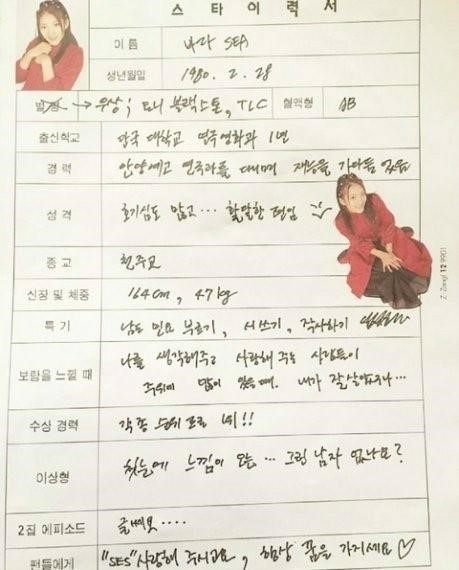 스 타 이 력 서
이 름 바다 SEA
생년월일 1980. 2. 28
별명 → 우상; 모니 블랙스톤, TLC 혈액형 AB
출신학교 단국 대학교 연극영화과 1년
경 력 안양예고 연극과를 다니며 재능을 가다듬었음
성 격 호기심도 많고… 활달한 편임
종 교 천주교
신장 및 체중 164cm, 47kg
특 기 남도 민요 부르기, 시쓰기, 작사하기
보람을 느낄 때 나를 생각해주고 사랑해 주는 사람들이
주위에 많이 있을때. 내가 잘살았구나…
수상 경력 각종 순위 프로 1위!!
이상형 첫눈에 느낌이 오는… 그런 남자 없나요?
2집 에피소드 글쎄요….
팬들에게 "SES"사랑해 주시고요, 항상 꿈을 가지세요♡
Z·Zang! 12 9901